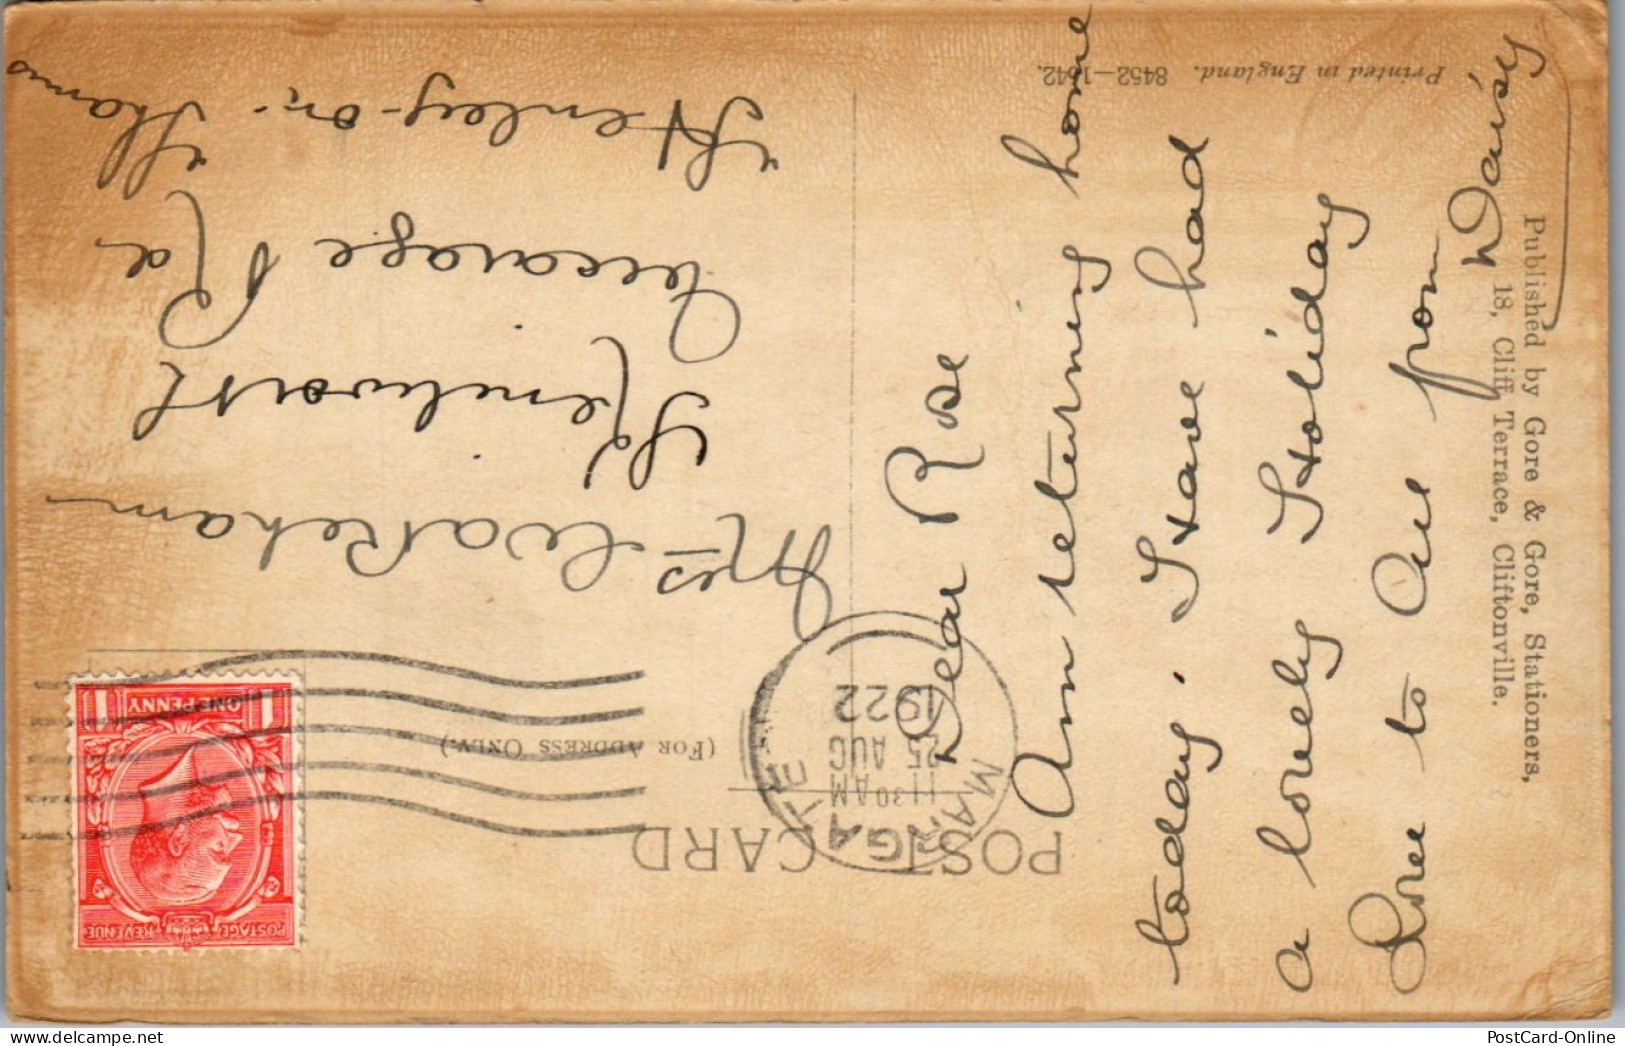 POST CARD
(FOR ADDRESS ONLY.)
MARGATE
11 30 AM
25 AUG
1922
ONE PENNY
1 1
POSTAGE REVENUE
Mrs Wakeham
Kenilworth
Vicarage Rd
Henley-on-Thames
Dear Rose
Am returning home
today. Have had
a lovely Holiday
Love to All from
Daisy
Published by Gore & Gore, Stationers,
18, Cliff Terrace, Cliftonville.
Printed in England. 8452—1642.
PostCard-Online